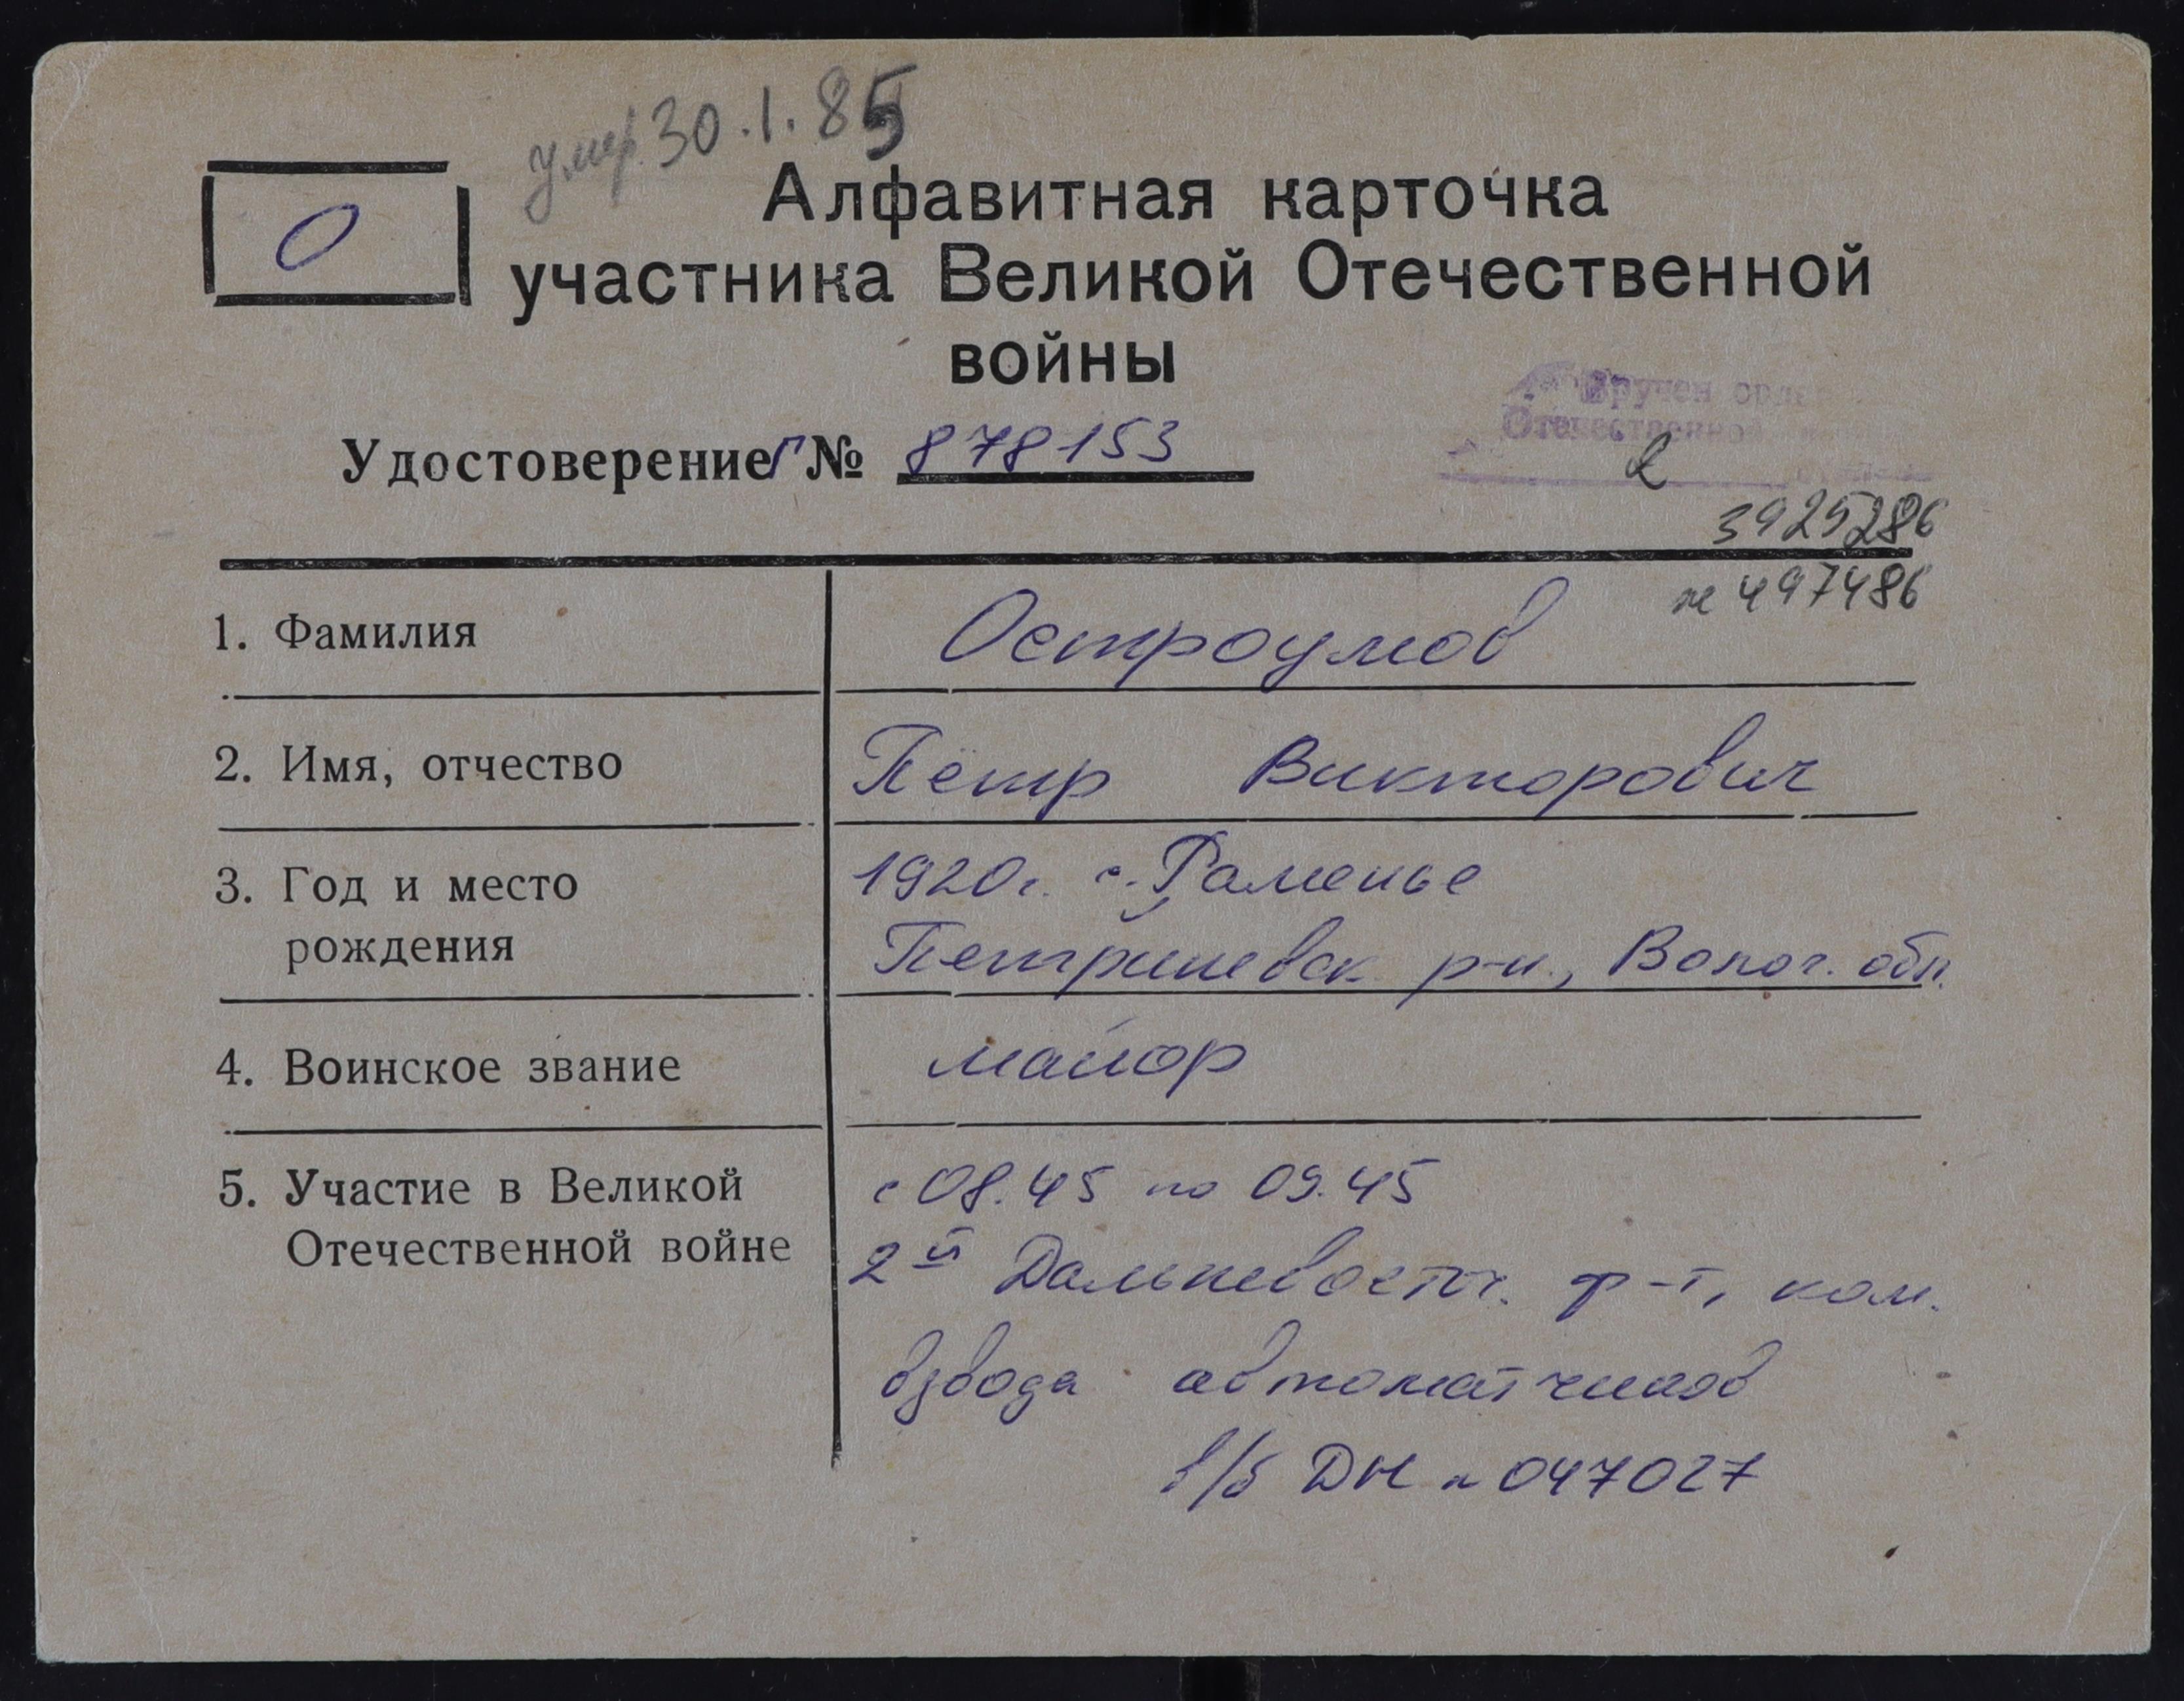 умер 30.1.85
О
Алфавитная карточка
участника Великой Отечественной
войны
Вручен орде
Отечественной
Удостоверение Г № 878153
2
3925286
№ 497486
1. Фамилия Остроумов
2. Имя, отчество Пётр Викторович
3. Год и место 1920г. с. Раменье
рождения Петриневск р-н, Волог. обл.
4. Воинское звание майор
5. Участие в Великой с 08.45 по 09.45
Отечественной войне 2й Дальневосточ. ф-т, ком.
взвода автоматчиков
в/б ДН № 047027